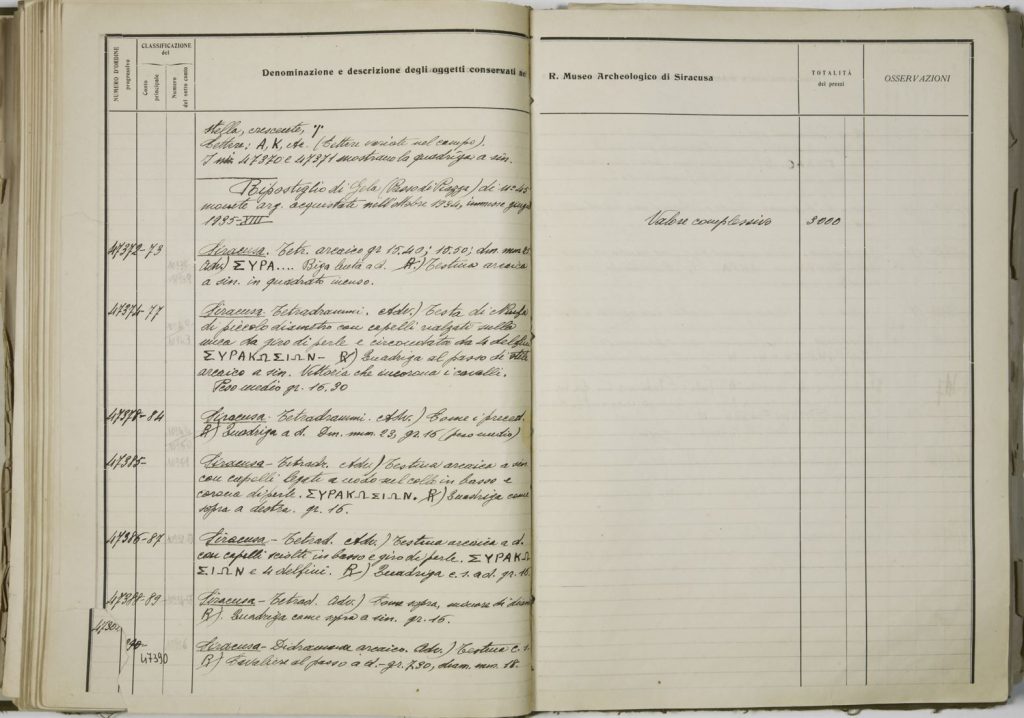 NUMERO D'ORDINE progressivo
CLASSIFICAZIONE del
Conto principale
Numero del sotto conto
Denominazione e descrizione degli oggetti conservati nel
R. Museo Archeologico di Siracusa
TOTALITÀ dei prezzi
OSSERVAZIONI
stella, crescente,
Lettere: A, K, (Lettere variate nel campo).
I 47370 e 47371 mostrano la quadriga a sin.
Ripostiglio di Gela (Passo di Piazza) di n° 45
monete arg. acquistate nell'ottobre 1934,
1935-VIII
Valore complessivo 3000
47372-73 Siracusa. Tetr. arcaico gr. 15.40; 10.50; dm. mm. 25
Adv.) ΣΥΡΑ.... Biga lenta a d. R.) Testina arcaica
a sin. in quadrato incuso.
47374-77 Siracusa- Tetradrammi. Adv.) Testa di Ninfa
di piccolo diametro con capelli rialzati sulla
nuca da giro di perle e circondata da 4 delfini
ΣΥΡΑΚΩΣΙΩΝ- R) Quadriga al passo di stile
arcaico a sin. Vittoria che incorona i cavalli.
Peso medio gr. 16,90
47378-84 Siracusa- Tetradrammi. Adv.) Come i preced.
R) Quadriga a d. Dm. mm. 23, gr. 16 (peso medio)
47385- Siracusa- Tetradr. Adv.) Testina arcaica a sin.
con capelli legati a nodo nel collo in basso e
corona di perle. ΣΥΡΑΚΩΣΙΩΝ. R) Quadriga come
sopra a destra. gr. 16.
47386-87 Siracusa- Tetrad. Adv.) Testina arcaica a d.
con capelli sciolti in basso e giro di perle. ΣΥΡΑΚΩ
ΣΙΩΝ e 4 delfini. R) Quadriga c. s. a d. gr. 16.
47388-89 Siracusa- Tetrad. Adv.) Come sopra, minore di diam.
R) Quadriga come sopra a sin. gr. 16.
47390 Siracusa- Didramma arcaico. Adv.) Testina c. s.
R) Cavaliere al passo a d.- gr. 7.90, diam. mm. 18.